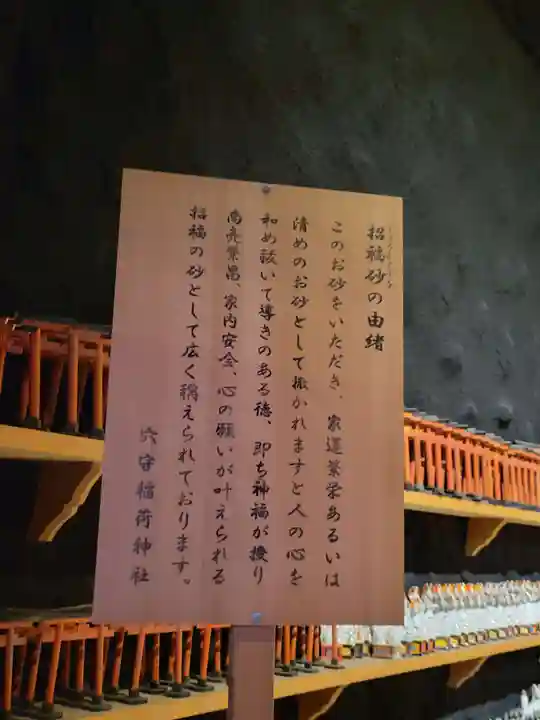 招福砂の由緒
このお砂をいただき、家運繁栄あるいは
清めのお砂として撒かれますと人の心を
和め訪いて導きのある徳、即ち神福が授り
商売繁昌、家内安全、心の願いが叶えられる
招福の砂として広く稱えられております。
穴守稲荷神社